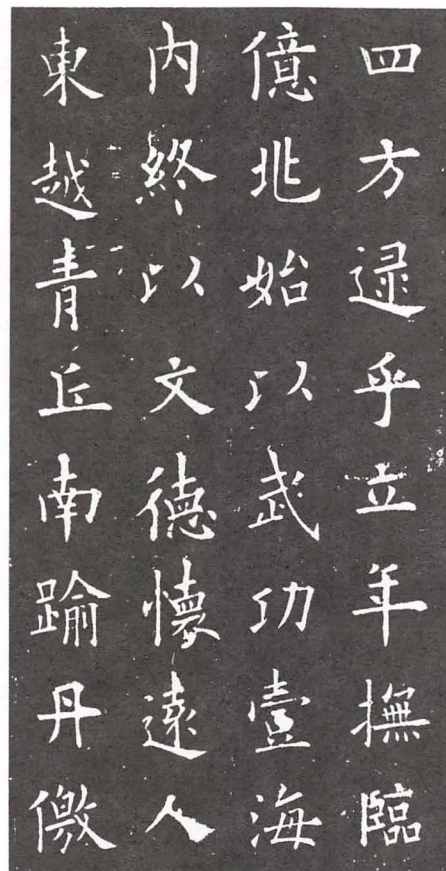 四方逮乎立年撫臨
億兆始以武功壹海
內終以文德懷遠人
東越青丘南踰丹儌